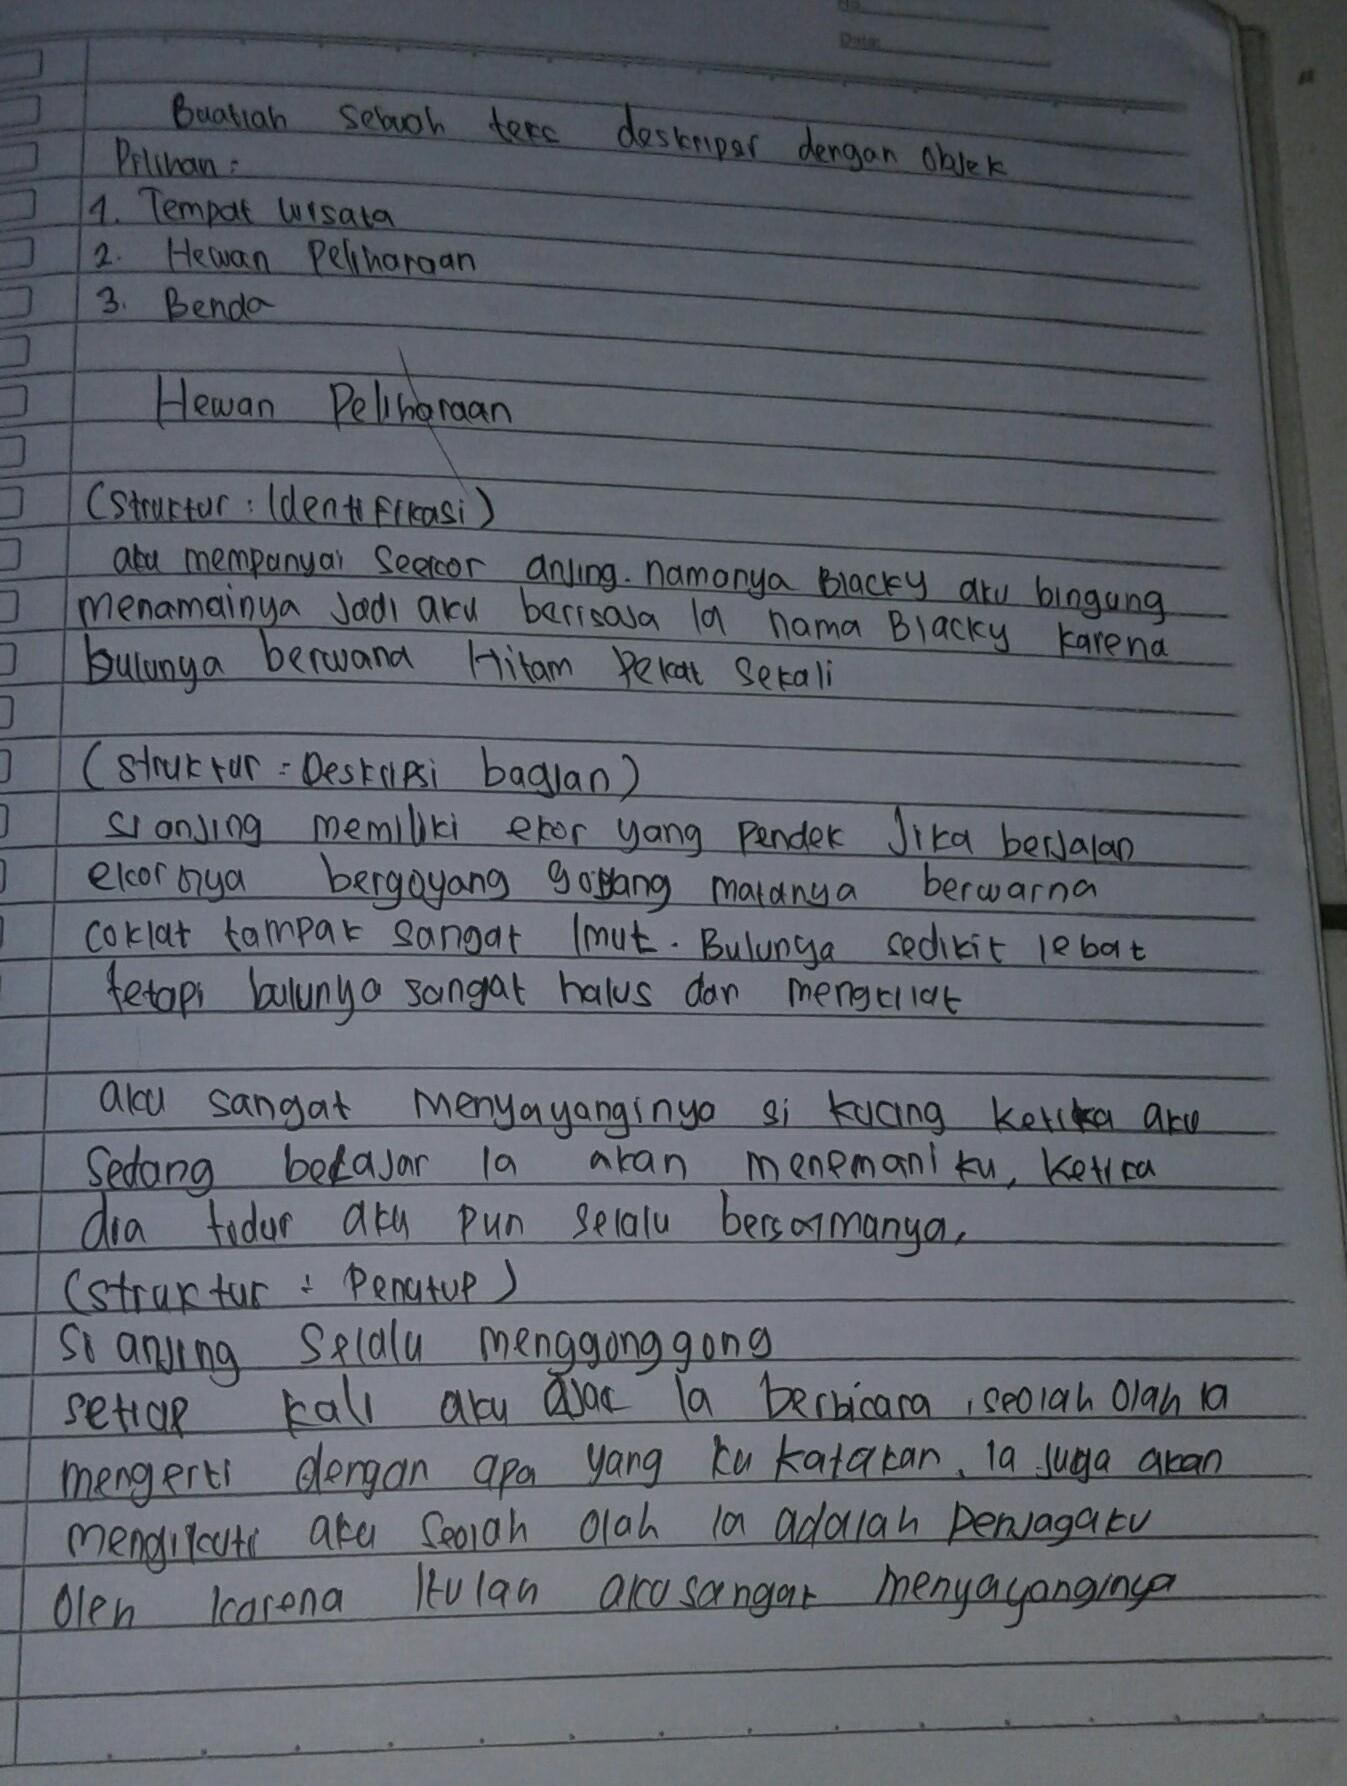 No
Date
Buatlah sebuah teks deskripsi dengan objek
Pilihan :
1. Tempat wisata
2. Hewan Peliharaan
3. Benda
Hewan Peliharaan
(Struktur : Identifikasi)
aku mempanyai Seekor anjing. namanya Blacky aku bingung
menamainya Jadi aku berisaja ia nama Blacky karena
bulunya berwana Hitam Pekat Sekali
(Struktur : Deskripsi bagian)
si anjing memiliki ekor yang Pendek Jika berjalan
ekornya bergoyang goyang matanya berwarna
coklat tampak sangat Imut. Bulunya sedikit lebat
tetapi bulunya sangat halus dan mengkilat
aku sangat menyayanginya si kucing ketika aku
Sedang belajar Ia akan menemani ku, Ketika
dia tidur aku pun selalu bersamanya,
(Struktur : Penutup)
Si anjing Selalu menggonggong
setiap kali aku ajak Ia berbicara, seolah olah ia
mengerti dengan apa yang ku katakan, Ia juga akan
mengikuti aku Seolah olah Ia adalah Penjagaku
Oleh karena Itulah aku sangat menyayanginya